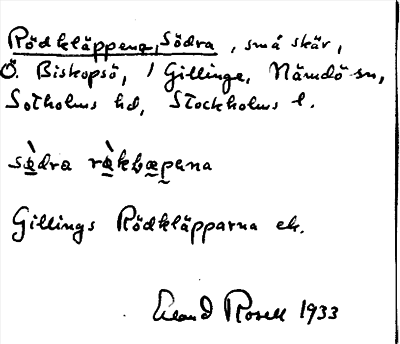 Rödkläppena, Södra, små skär,
Ö. Biskopsö, / Gillinge, Nämdö sn,
Sotholms hd, Stockholms l.
sö̀dra rö̀kbæpena
Gillings Rödkläpparna ek.
Erland Rosell 1933